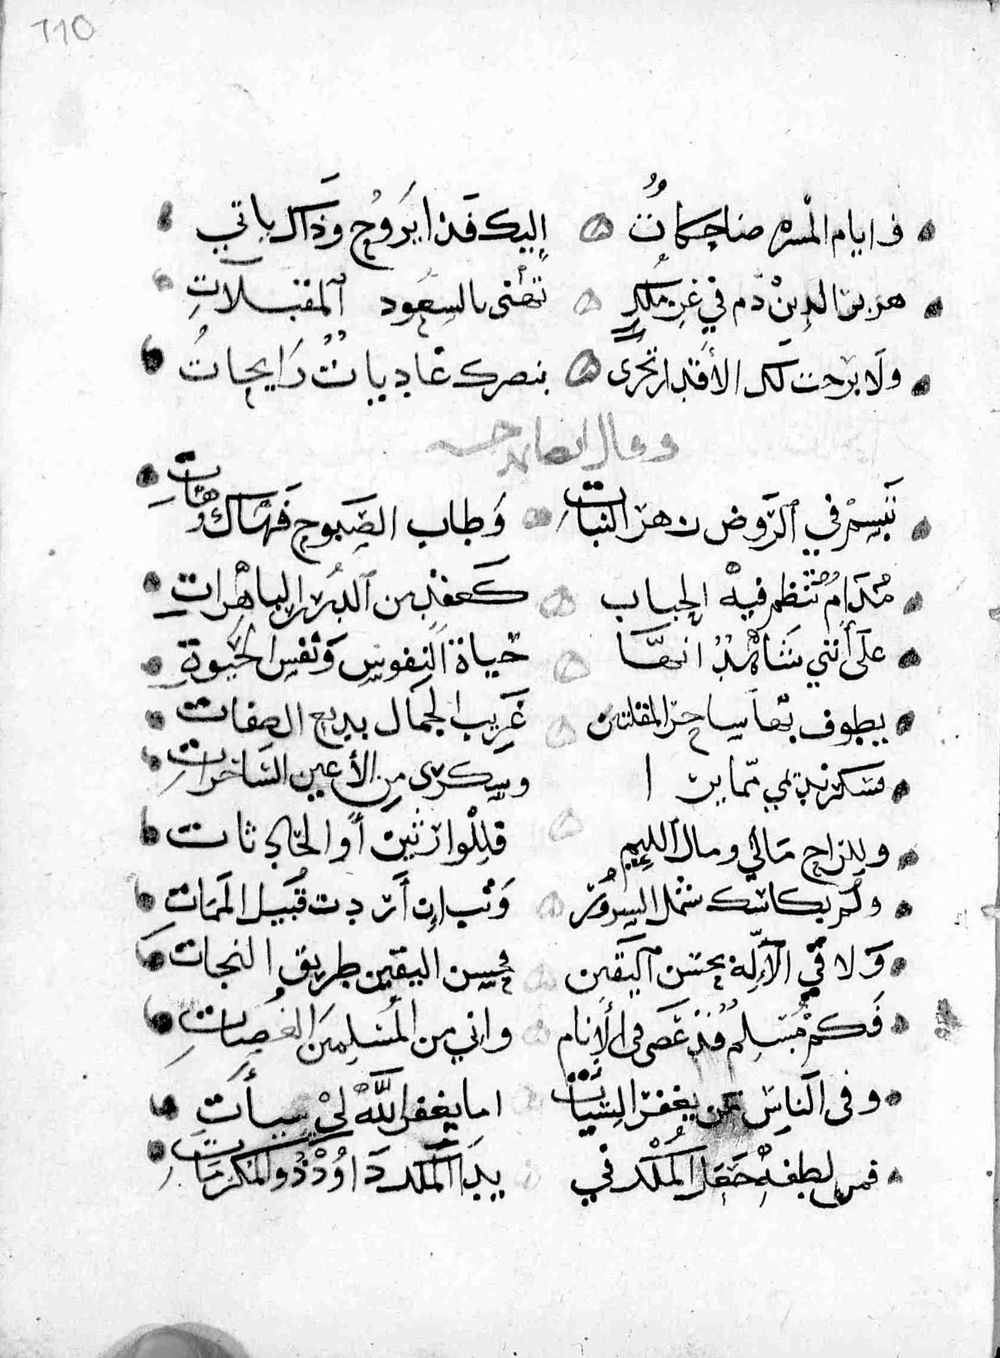 110
وايام المسره ضاحكات اليك فذا يروح وذاك ياتي
هزبر الدين دم في عز ملك تهنى بالسعود المقبلات
ولا برحت لك الأقدار تجرى بنصرك غاديات رايحات
وقال ايضا
تبسم في الروض زهر النبات وطاب الصبوح فهاك وهات
مدام تنظم فيه الحباب كعقد من الدرر الباهرات
على أنني شاهد انها حياة النفوس ونفس الحيوة
يطوف بها ساحر المقلتين غريب الجمال بديع الصفات
وسكرى من الأعين الساخرات
وللراح مالي ومال اللئيم فللوارثين أو الحادثات
ولم بكاسك شمل السرور وثب ان أردت قبيل الممات
ولاقي الآله بحسن اليقين فحسن اليقين طريق النجات
فكم مسلم قد عصى في الأنام واني من المسلمين العصات
وفى الناس من يغفر السيئات اما يغفر الله لي سيأت
فمن لطفه جعل الملك في يد الملك داود ذو المكرمات